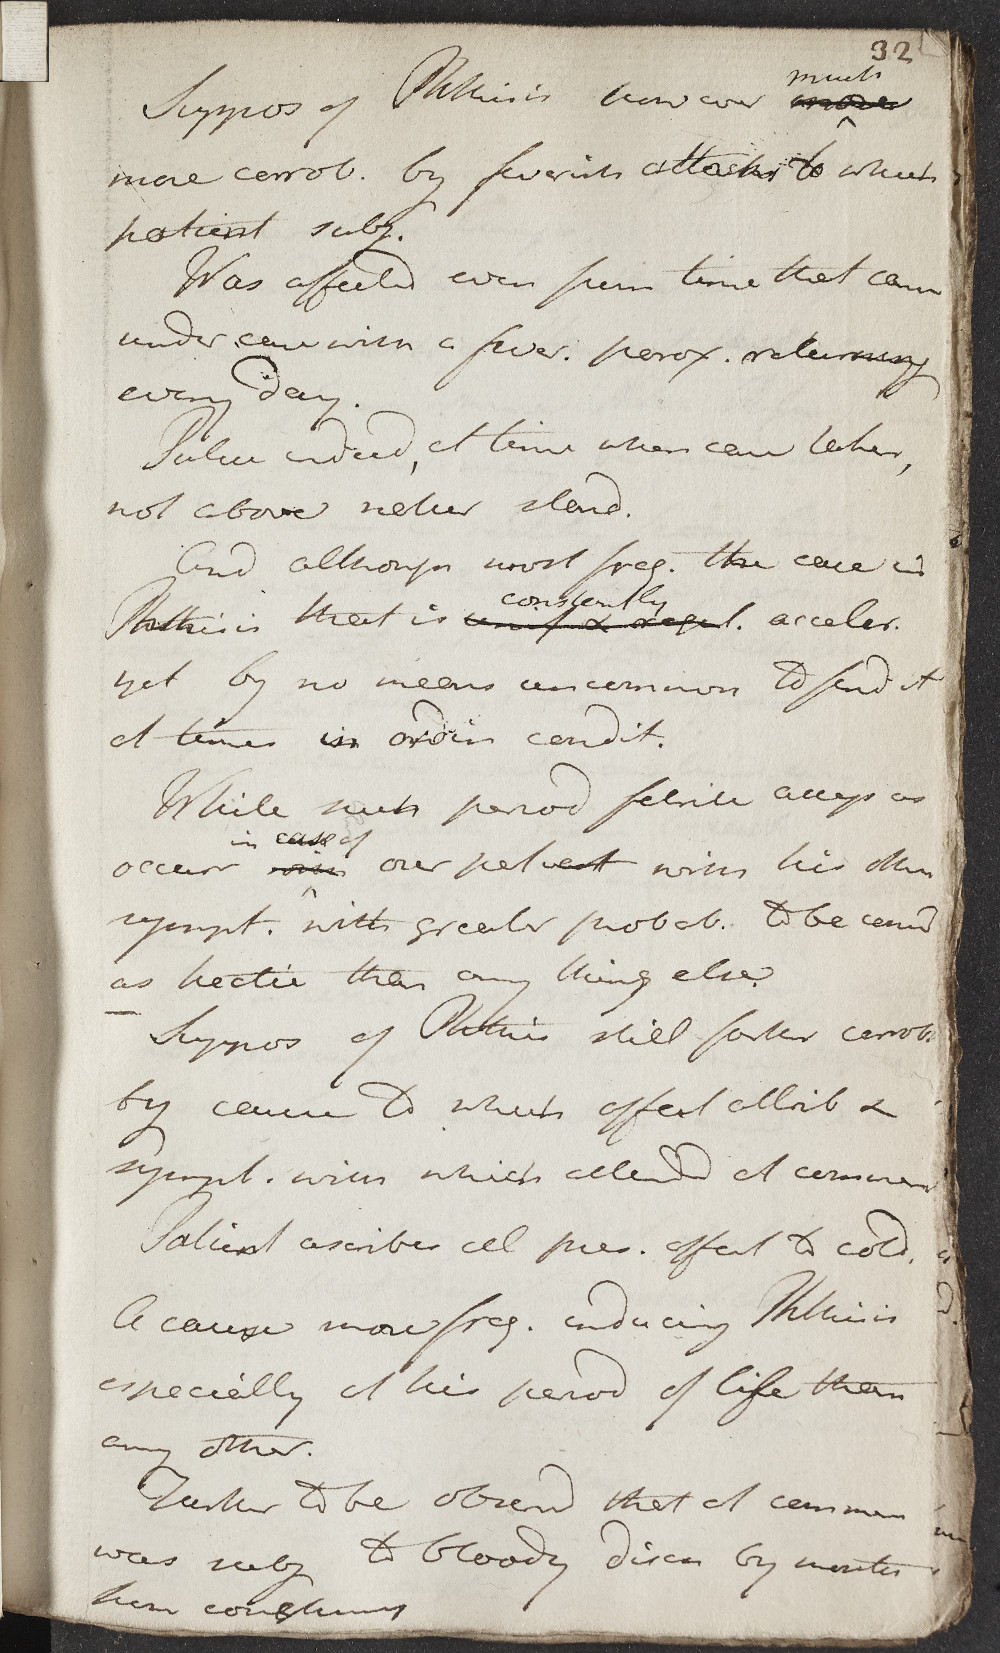 32
Suppos of Phthisis however much
more corrob. by feverish attacks to which
patient subj.
Was affected even from time that came
under care with a fever. parox. returning
every day.
Pulse indeed, at time when case taken,
not above natur stand.
And although most freq. the case in
Phthisis that is constantly acceler.
yet by no means uncommon to find it
at times in ordin condit.
While such period febrile access as
occur in case of our patient with his other
sympt. with greater probab. to be consd
as hectic than any thing else.
Suppos of Phthisis still farther corrob
by cause to which affect attrib &
sympt. with which attended at commen
Patient ascribes all pres. affect to cold.
A cause more freq. inducing Phthisis
especially at his period of life than
any other.
Farther to be observd that at commen
was subj to bloody disch by mouth
when coughing